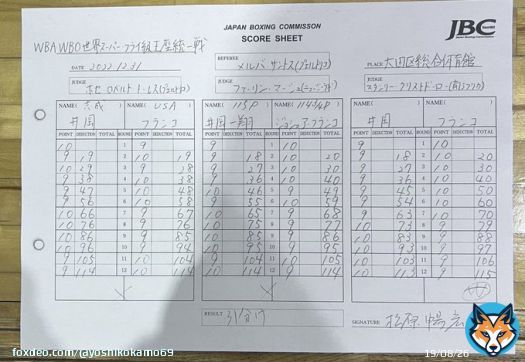 JAPAN BOXING COMMISSON
SCORE SHEET
JBC
WBA WBO世界スーパーフライ級王座統一戦
DATE 2022.12.31
REFEREE メルバ・サントス(プエルトリコ)
PLACE 大田区総合体育館
JUDGE
JUDGE
JUDGE
NAME( 志成 ) NAME( USA ) NAME( 115P ) NAME( 114-114P ) NAME( ) NAME( )
井岡 フランコ 井岡一翔 ジョシュア・フランコ 井岡 フランコ
POINT DEDUCED TOTAL ROUND POINT DEDUCED TOTAL POINT DEDUCED TOTAL ROUND POINT DEDUCED TOTAL POINT DEDUCED TOTAL ROUND POINT DEDUCED TOTAL
10 1 9 9 1 10 9 1 10
9 19 2 10 19 9 18 2 10 20 9 18 2 10 20
10 29 3 9 28 9 27 3 10 30 9 27 3 10 30
9 38 4 10 38 9 36 4 10 40 9 36 4 10 40
9 47 5 10 48 10 46 5 9 49 9 45 5 10 50
9 56 6 10 58 9 55 6 10 59 9 54 6 10 60
10 66 7 9 67 10 65 7 9 68 9 63 7 10 70
10 76 8 9 76 10 75 8 9 77 10 73 8 9 79
10 86 9 9 85 10 85 9 9 86 10 83 9 9 88
10 96 10 9 94 10 95 10 9 95 10 93 10 9 97
9 105 11 10 104 9 104 11 10 105 10 103 11 9 106
9 114 12 10 114 10 114 12 9 114 10 113 12 9 115
RESULT 引分け
SIGNATURE
foxdeo.com/@yoshikokamo69
19/08/26